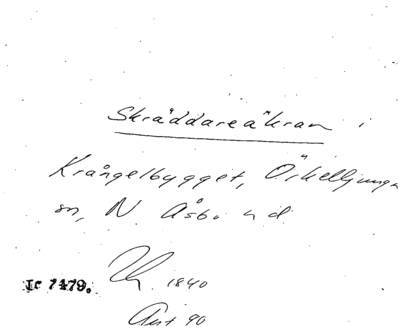 Skräddareäkran i
Krångelbygget, Örkelljunga
sn, N Åsbo hd
Ic 7479. 1840
90